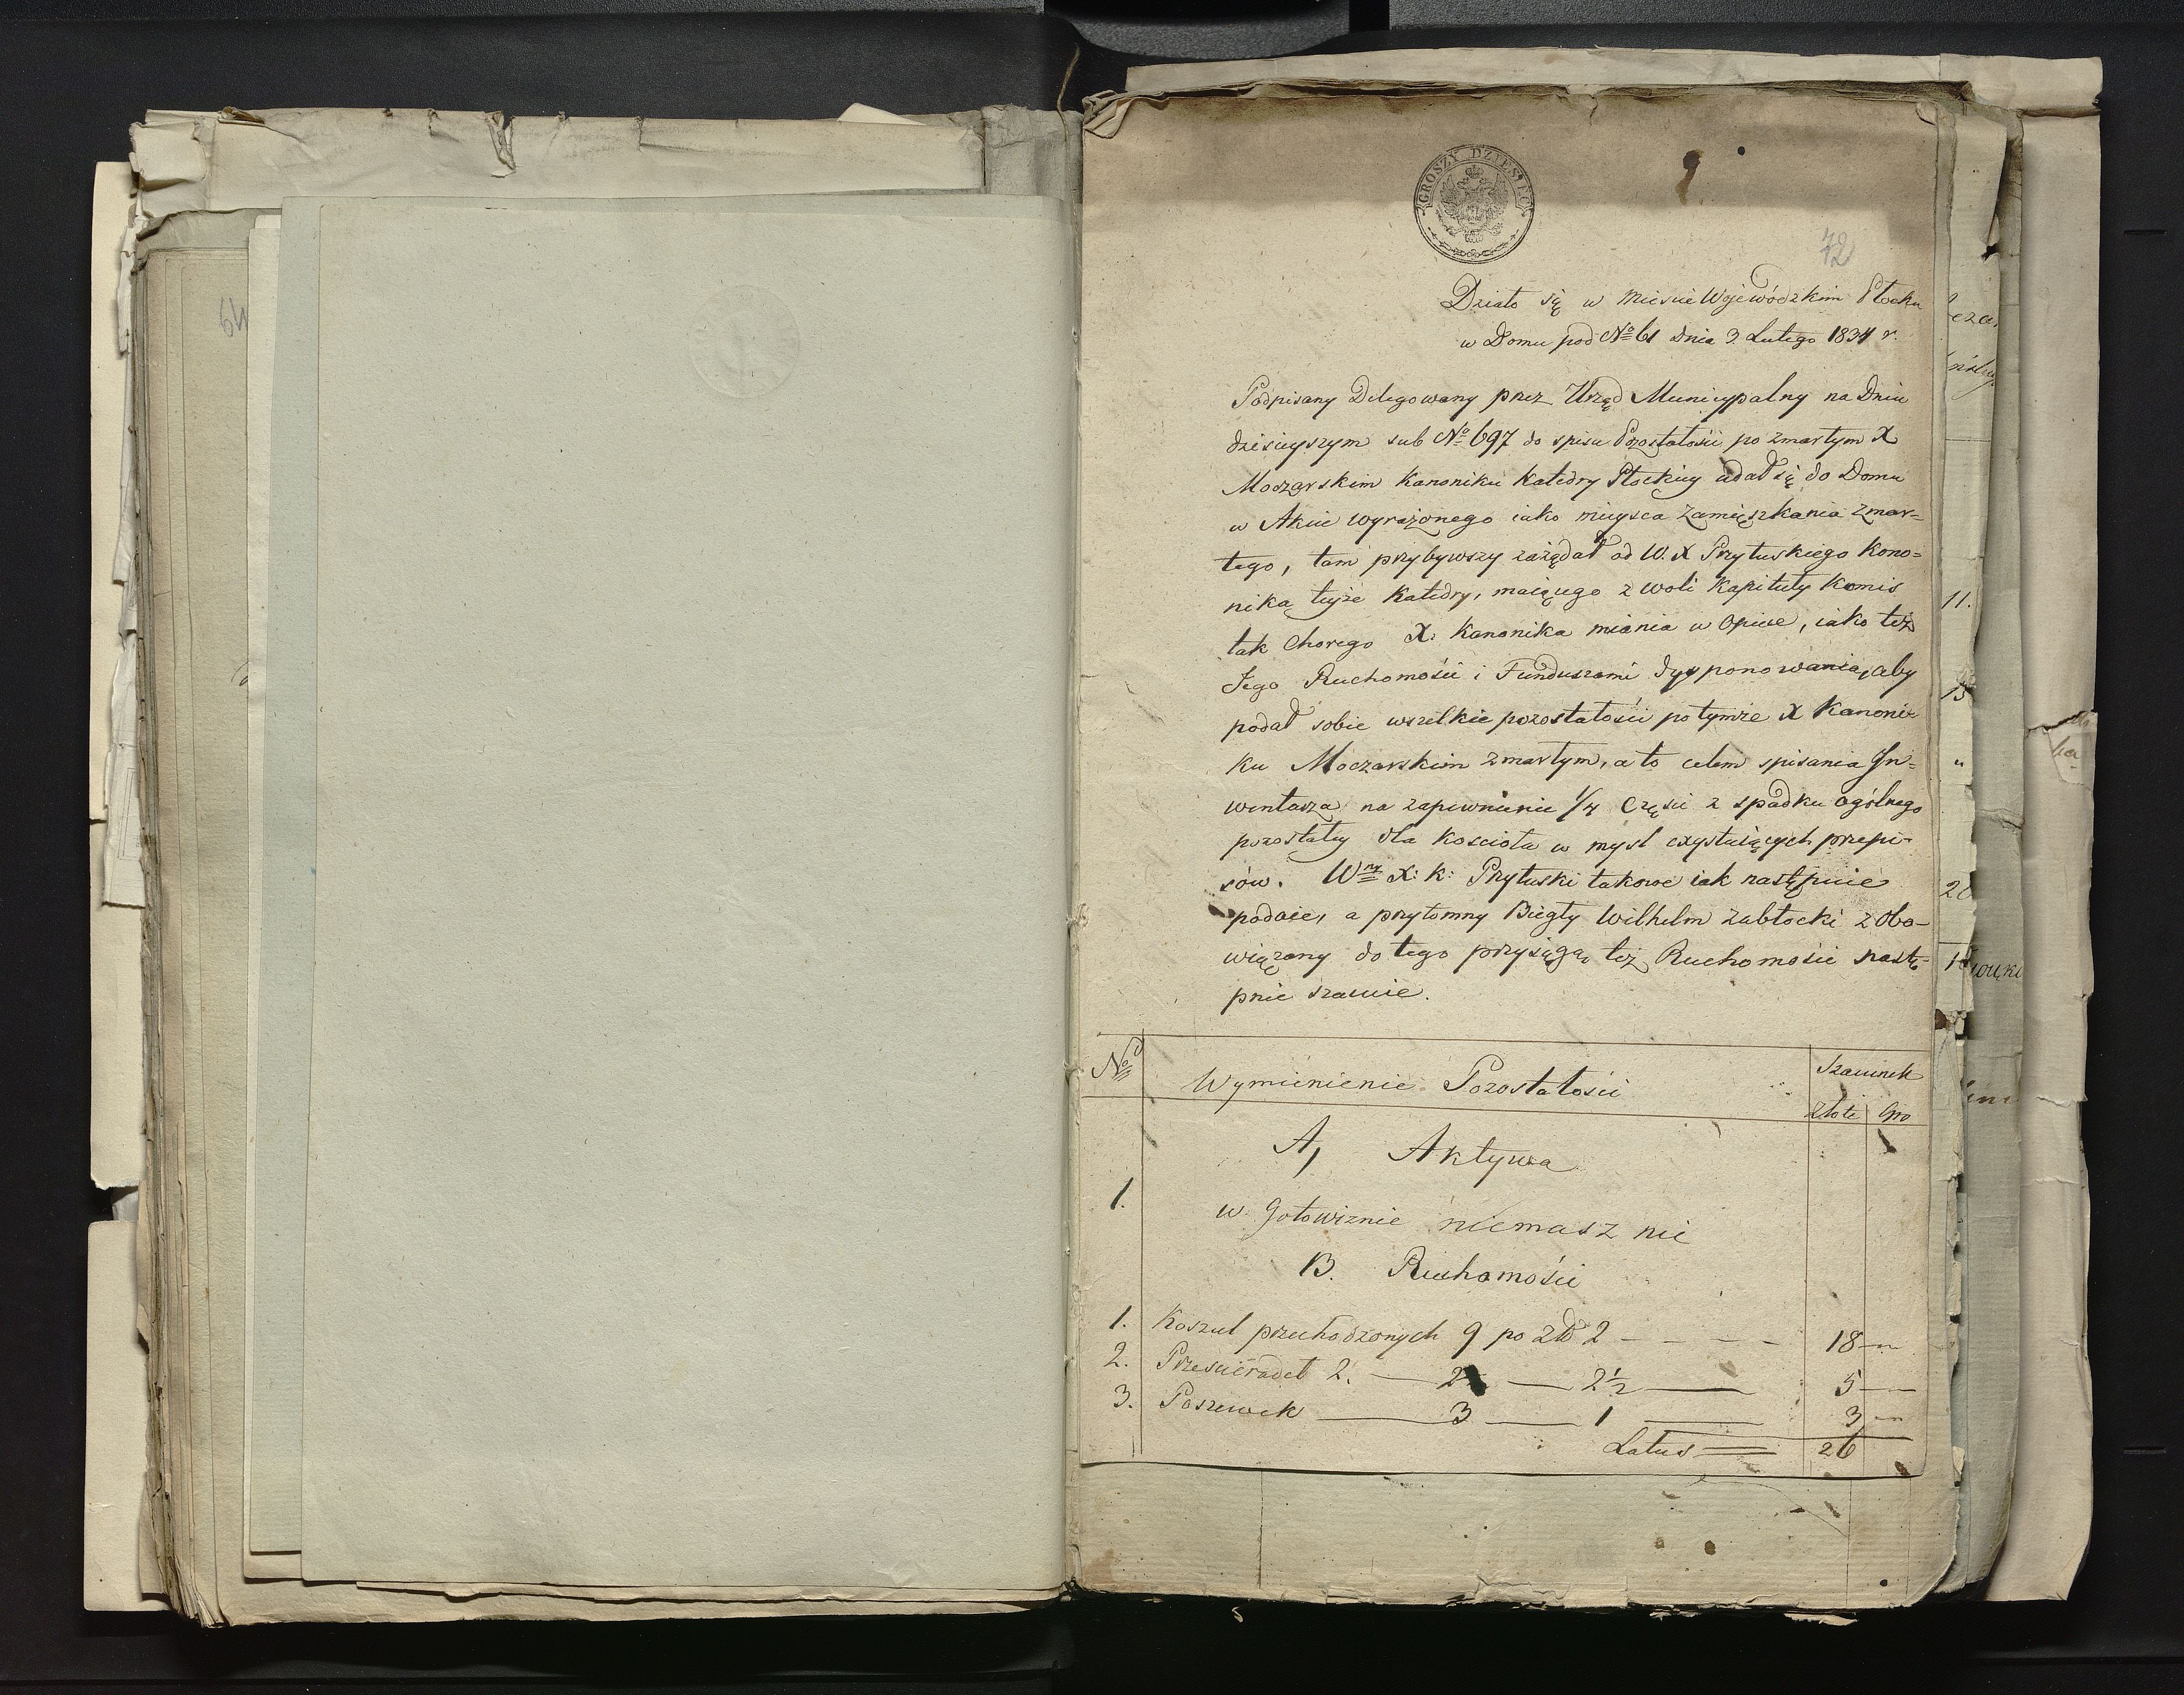 64
GROSZY DZIESIĘĆ
72
Działo się w Mieście Woiewódzkim Płocku
w Domu pod No 61 dnia 3 Lutego 1834 r.
Podpisany Delegowany przez Urząd Municypalny na Dniu
dzisieyszym sub No 697 do spisu Pozostałości po zmarłym X
Moczarskim Kanoniku Katedry Płockiey udał się do Domu
w Akcie wyrażonego iako mieysca zamięszkania zmar=
łego, tam przybywszy zażądał od W. X Przyłuskiego Kano=
nika teyże Katedry, maiącego z woli Kapituły Komis
tak Chorego X. Kanonika miania w Opiece, iako też
Jego Ruchomości i Funduszami dysponowania, aby
podał sobie wszelkie pozostałości po tymże X Kanoni=
ku Moczarskim zmarłym, a to celem spisania In=
wentarza na zapewnienie 1/4 Części z spadku ogólnego
pozostałey dla Kościoła w myśl exystuiących przepi=
sów. Wny X: K: Przyłuski takowe iak następuie
podaie, a przytomny Biegły Wilhelm Zabłocki zobo=
wiązany do tego przysięgą też Ruchomości nastę=
pnie szacuie.
No Wymienienie Pozostałości Szacunek
Złote Gro
A, Aktywa
1. w Gotowiznie niemasz nic
B. Ruchomości
1. Koszul przechodzonych 9 po Zło 2 — — — — 18 —
2. Prześcieradeł 2. — 2 — 2 1/2 — 5 —
3. Poszewek — 3 — 1 — 3 —
Latus 26